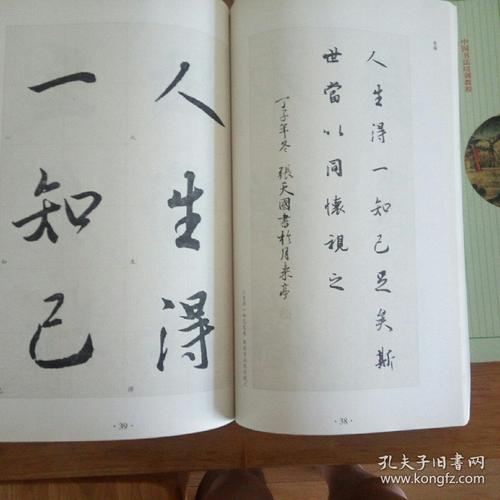 中国书法培训教程
人生得一知己足矣斯
世當以同懷視之
丁子年冬 張天國書於月来亭
·38·
人生得
一知己
·39·
孔夫子旧书网
www.kongfz.com